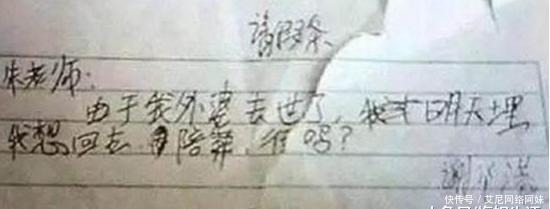 请假条
朱老师:
由于我外婆去世了,我才明天埋
我想回去陪葬,行吗?
谢
快传号/艾尼网络阿妹